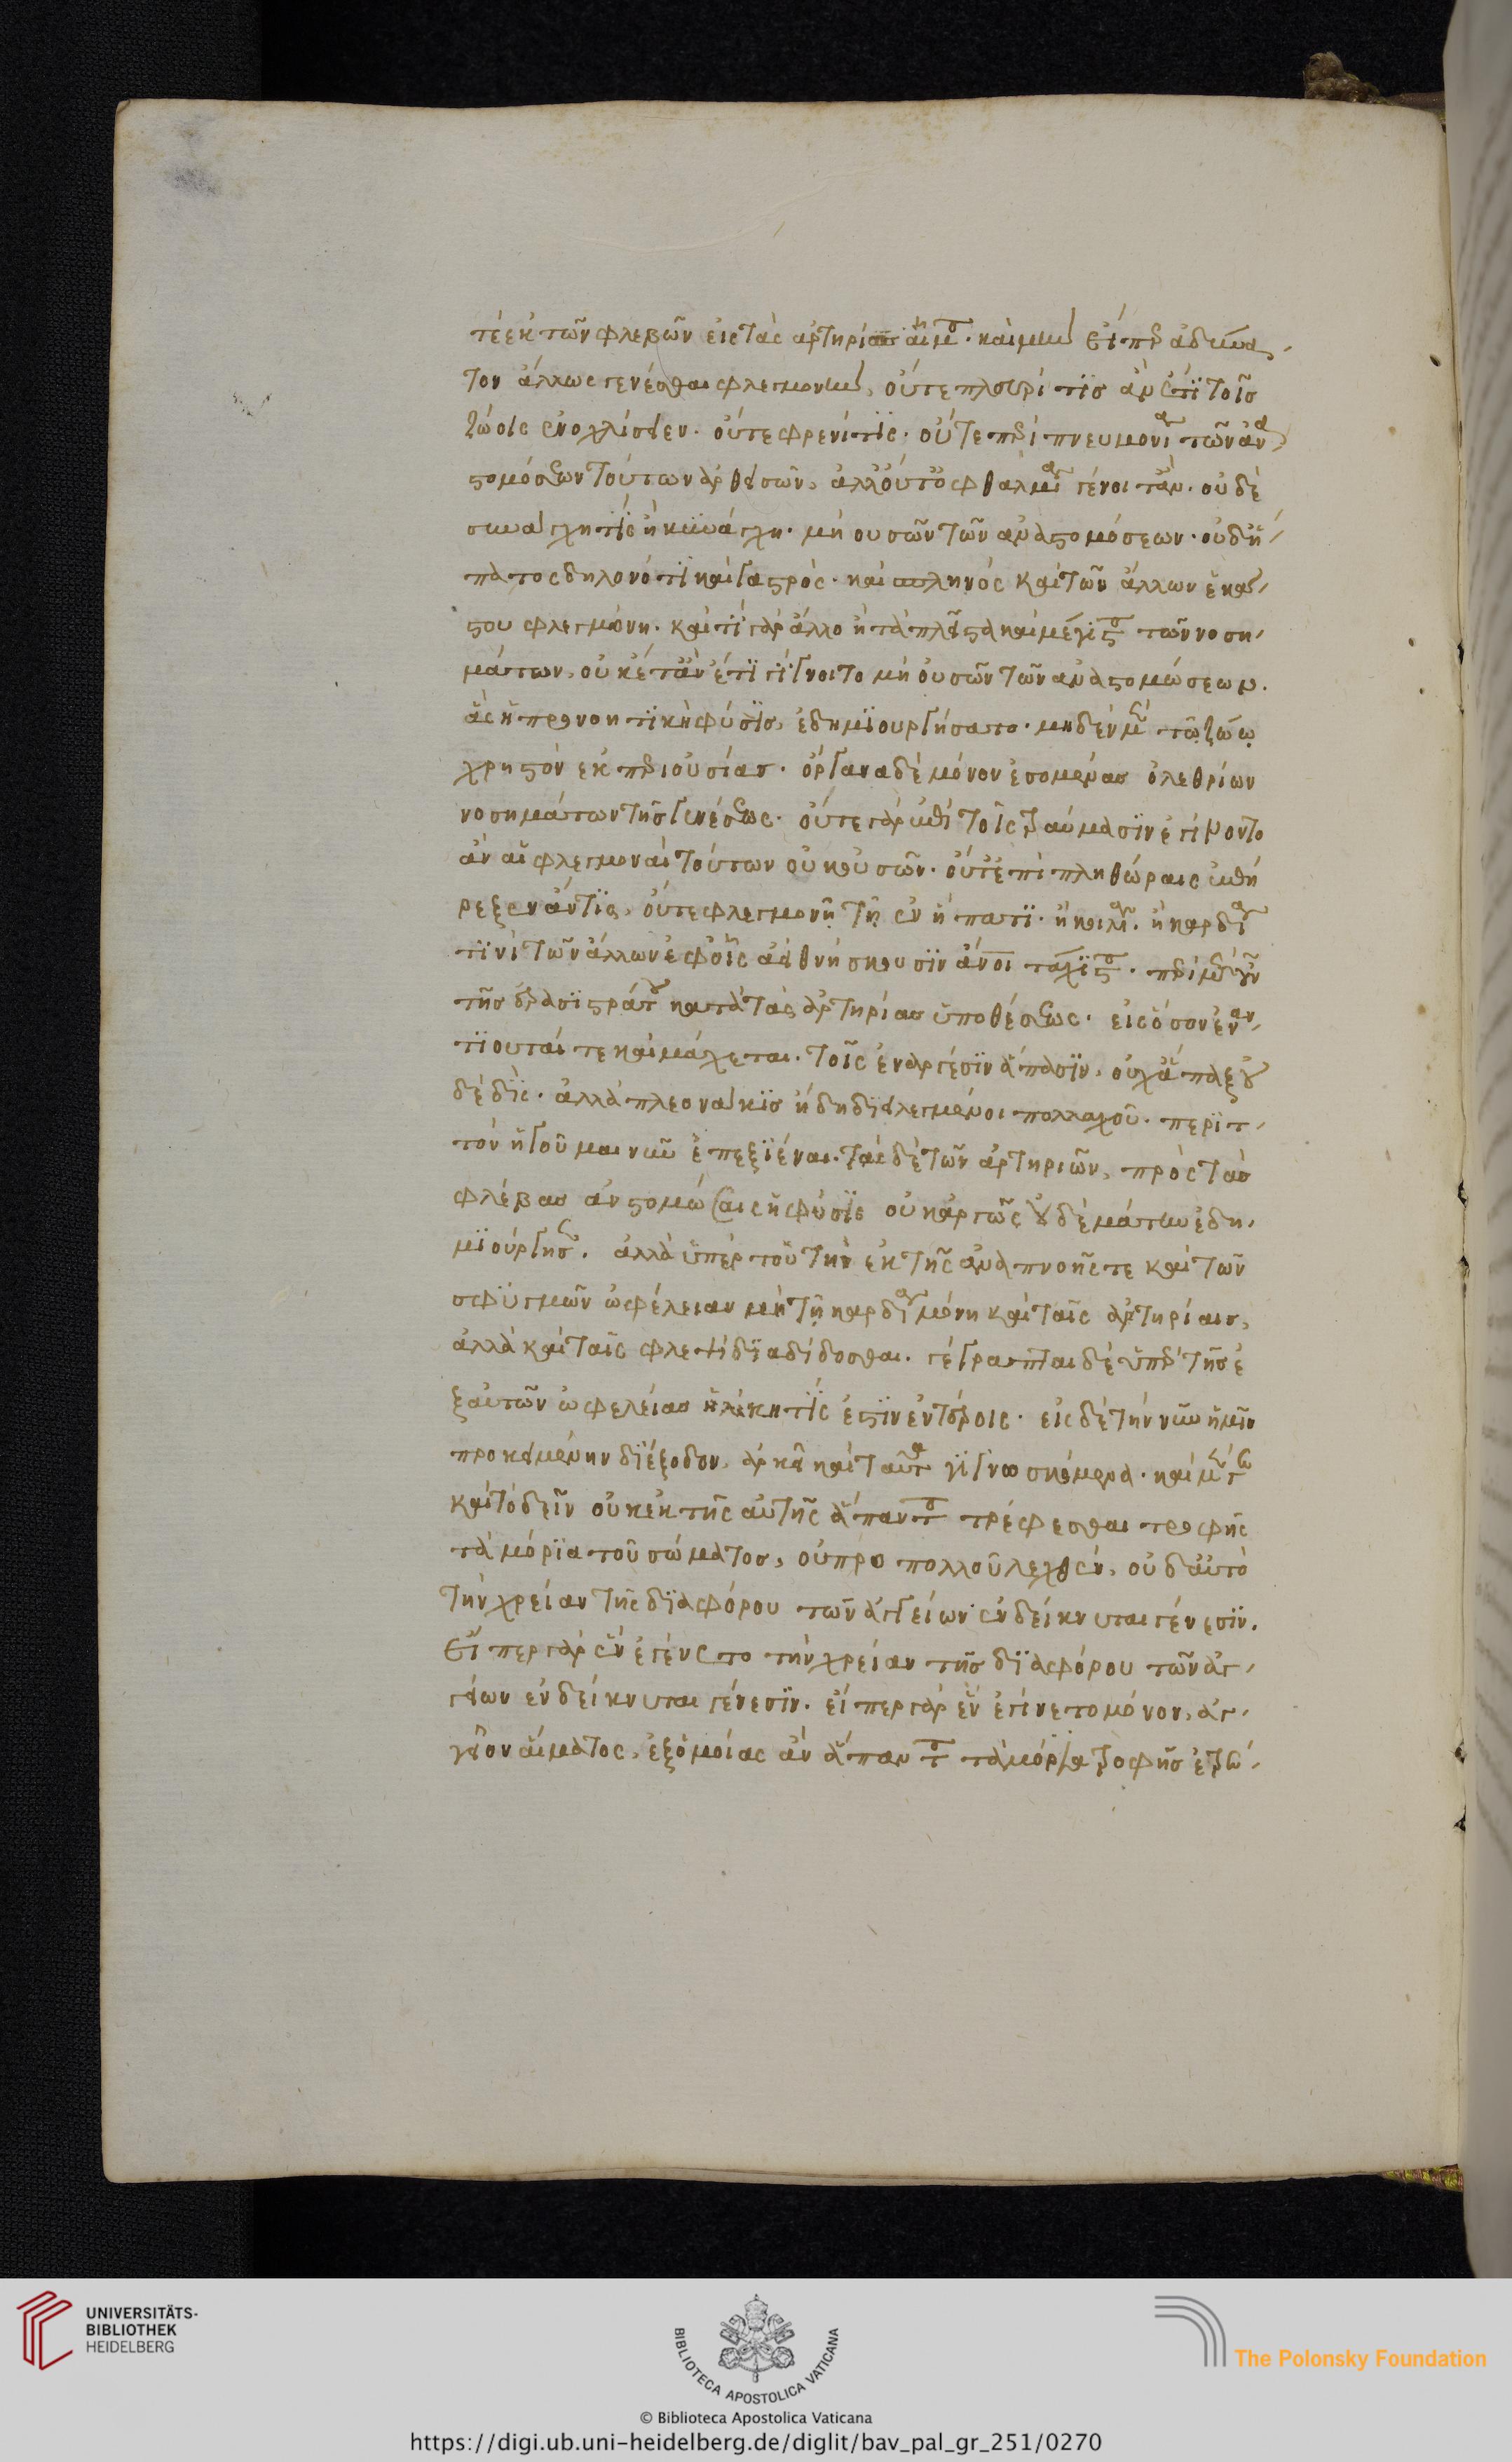 τε ἐκ τῶν φλεβῶν εἰς τὰς ἀρτηρίας αἷμα. καὶ μὴν εἴπερ ἀδύνα-
τον ἄλλως γενέσθαι φλεγμονὴν, οὔτε πλευρίτις ἂν ἔτι τοῖς
ζώοις ἐνοχλήσειεν. οὔτε φρενίτις. οὔτε περιπνευμονία τῶν ἀνα
στομώσεων τούτων ἀρθεισῶν, ἀλλ' οὐτ' ὀφθαλμία γένοιτ' ἄν. οὐδὲ
συναγχητὶς ἢ κυνάγχη. μὴ οὐσῶν τῶν ἀναστομόσεων. οὐδ' ἥ-
πατος δηλονότι καὶ γαστρός. καὶ σπληνός καὶ τῶν ἄλλων ἑκά-
στου φλεγμόνη. καὶ τί γὰρ ἄλλο ἢ τὰ πλεῖστα καὶ μέγιστα τῶν νοση-
μάτων, οὐκέτ' ἂν ἔτι γίγνοιτο μὴ οὐσῶν τῶν ἀναστομώσεων.
ἃς ἡ προνοητικὴ φύσις, ἐδημιουργήσατο. μηδὲν μὲν τῷ ζώῳ
χρηστὸν ἐκ περιουσίας. ὄργανα δὲ μόνον ἐσομένας ὀλεθρίων
νοσημάτων τῆς γενέσεως. οὔτε γὰρ ἐπὶ τοῖς τραύμασιν ἐγίνοντο
ἂν αἱ φλεγμοναὶ τούτων οὐκ οὐσῶν. οὔτ' ἐπὶ πληθώραις
οὔτε φλεγμονῇ τῇ ἐν ἥπατι. ἢ κοιλίᾳ. ἢ καρδίᾳ
τινὶ τῶν ἄλλων ἐφ' οἷς ἀποθνήσκουσιν ἄνοι τάχιστα. περὶ μὲν οὖν
τῆς ἐρασιστράτου κατὰ τὰς ἀρτηρίας ὑποθέσεως. εἰς ὅσον ἐναν-
τιοῦταί τε καὶ μάχεται. τοῖς ἐναργέσιν ἅπασιν, οὐχ' ἅπαξ οὐ
δὲ δίς. ἀλλὰ πλεονάκις ἤδη διειλεγμένοι πολλαχοῦ. περιτ-
τὸν ἡγοῦμαι νῦν ἐπεξιέναι. τὰς δὲ τῶν ἀρτηριῶν, πρὸς τὰς
φλέβας ἀναστομώσεις ἡ φύσις οὐκ ἀργῶς οὐδὲ μάτην ἐδη-
μιούργησεν. ἀλλὰ ὑπὲρ τοῦ τὴν ἐκ τῆς ἀναπνοῆς τε καὶ τῶν
σφυγμῶν ὠφέλειαν μὴ τῇ καρδίᾳ μόνῃ καὶ ταῖς ἀρτηρίαις,
ἀλλὰ καὶ ταῖς φλεψὶ διαδίδοσθαι. γέγραπται δὲ ὑπὲρ τῆς ἐ
ξ αὐτῶν ὠφελείας ἡλίκη τίς ἐστὶν ἐν ἑτέροις. εἰς δὲ τὴν νῦν ἡμῖν
προκειμένην διέξοδον, ἀρκεῖ καὶ ταῦτα γιγνωσκόμενα.
καὶ τὸ δεῖν οὐκ ἐκ τῆς αὐτῆς ἅπαντα τρέφεσθαι τροφῆς
τὰ μόρια τοῦ σώματος, οὐ πρὸ πολλοῦ λεχθέν, οὐδ' αὐτὸ
τὴν χρείαν τῆς διαφόρου τῶν ἀγγείων ἐνδείκνυται γένεσιν.
εἴπερ γὰρ ἓν ἐγένετο τὴν χρείαν τῆς διαφόρου τῶν ἀγ-
γείων ἐνδείκνυται γένεσιν. εἴπερ γὰρ ἓν ἐγίνετο μόνον, ἀγ-
γεῖον αἵματος, ἐξ ὁμοίας ἂν ἅπαντα τὰ μόρια τροφῆς ἐτρέ-
UNIVERSITÄTS-
BIBLIOTHEK
HEIDELBERG
BIBLIOTECA APOSTOLICA VATICANA
The Polonsky Foundation
© Biblioteca Apostolica Vaticana
https://digi.ub.uni-heidelberg.de/diglit/bav_pal_gr_251/0270